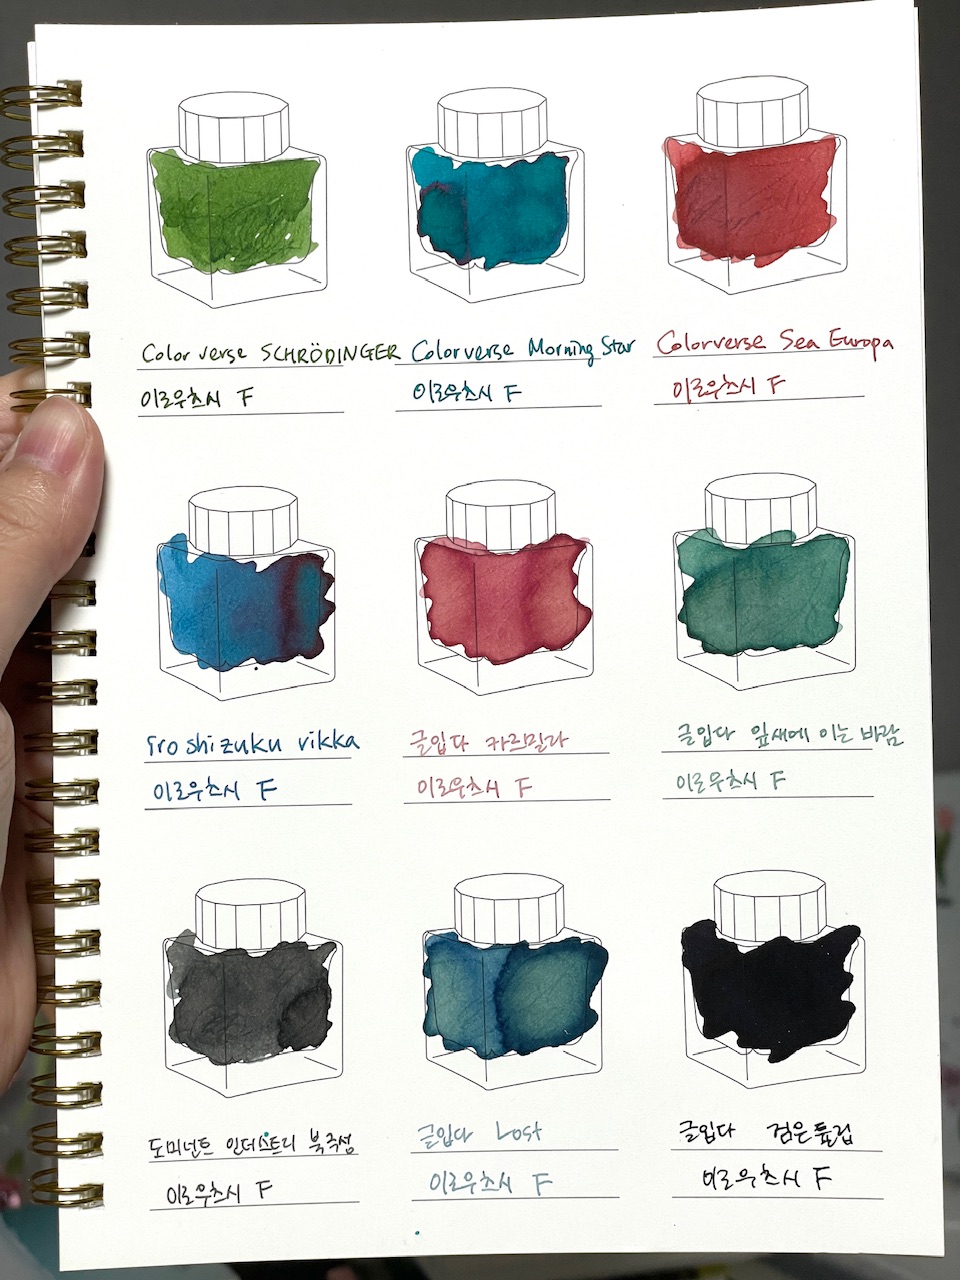 Colorverse SCHRÖDINGER
이로우츠시 F
Colorverse Morning Star
이로우츠시 F
Colorverse Sea Europa
이로우츠시 F
Iroshizuku rikka
이로우츠시 F
글입다 카르밀라
이로우츠시 F
글입다 잎새에 이는 바람
이로우츠시 F
도미넌트 인더스트리 북극성
이로우츠시 F
글입다 Lost
이로우츠시 F
글입다 검은 튤립
이로우츠시 F